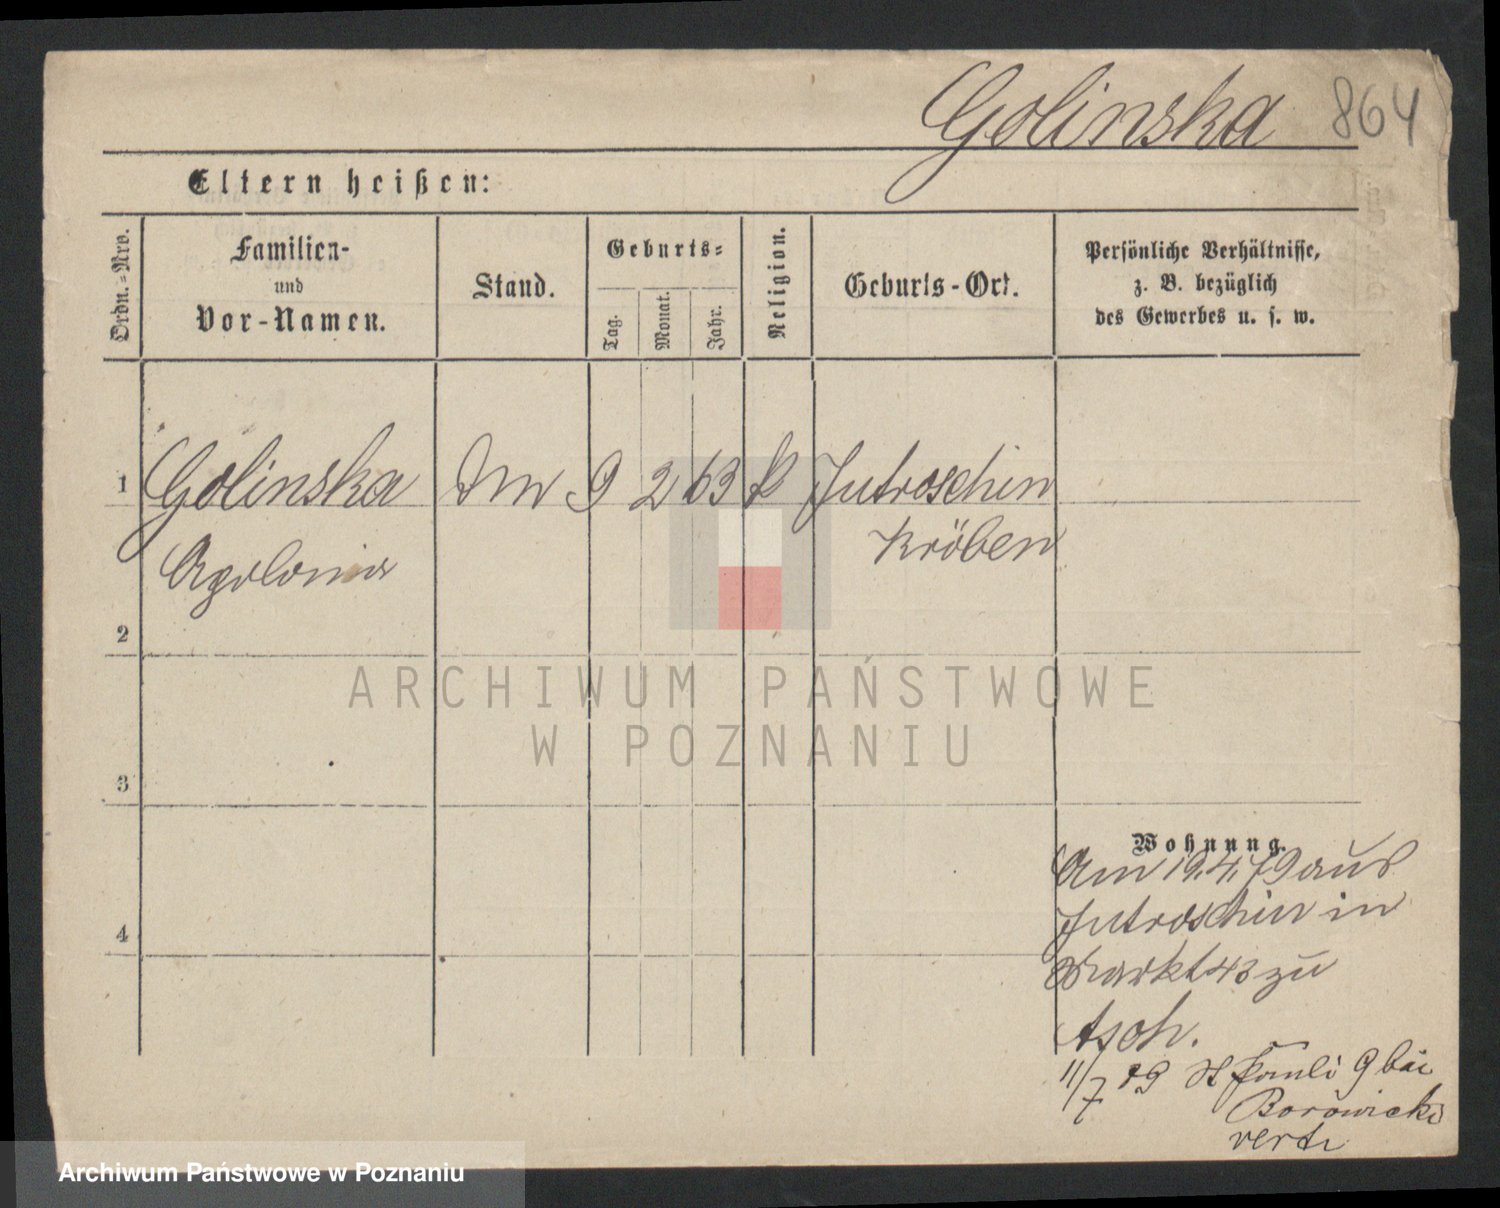 Golinska 864
Eltern heißen:
Ordn.-Nro.
Familien-
und
Vor-Namen.
Stand.
Geburts-
Tag.
Monat.
Jahr.
Religion.
Geburts-Ort.
Persönliche Verhältnisse,
z. B. bezüglich
des Gewerbes u. s. w.
1 Golinska 9 2 63 k Jutroschin
Kröben
Apolonia
2
ARCHIWUM PAŃSTWOWE
W POZNANIU
3
Wohnung.
Am 19.4.79 aus
Jutroschin in
4
Markt 43 zu
11/7 79 St Pauli 9 bei
Borowicki
Archiwum Państwowe w Poznaniu